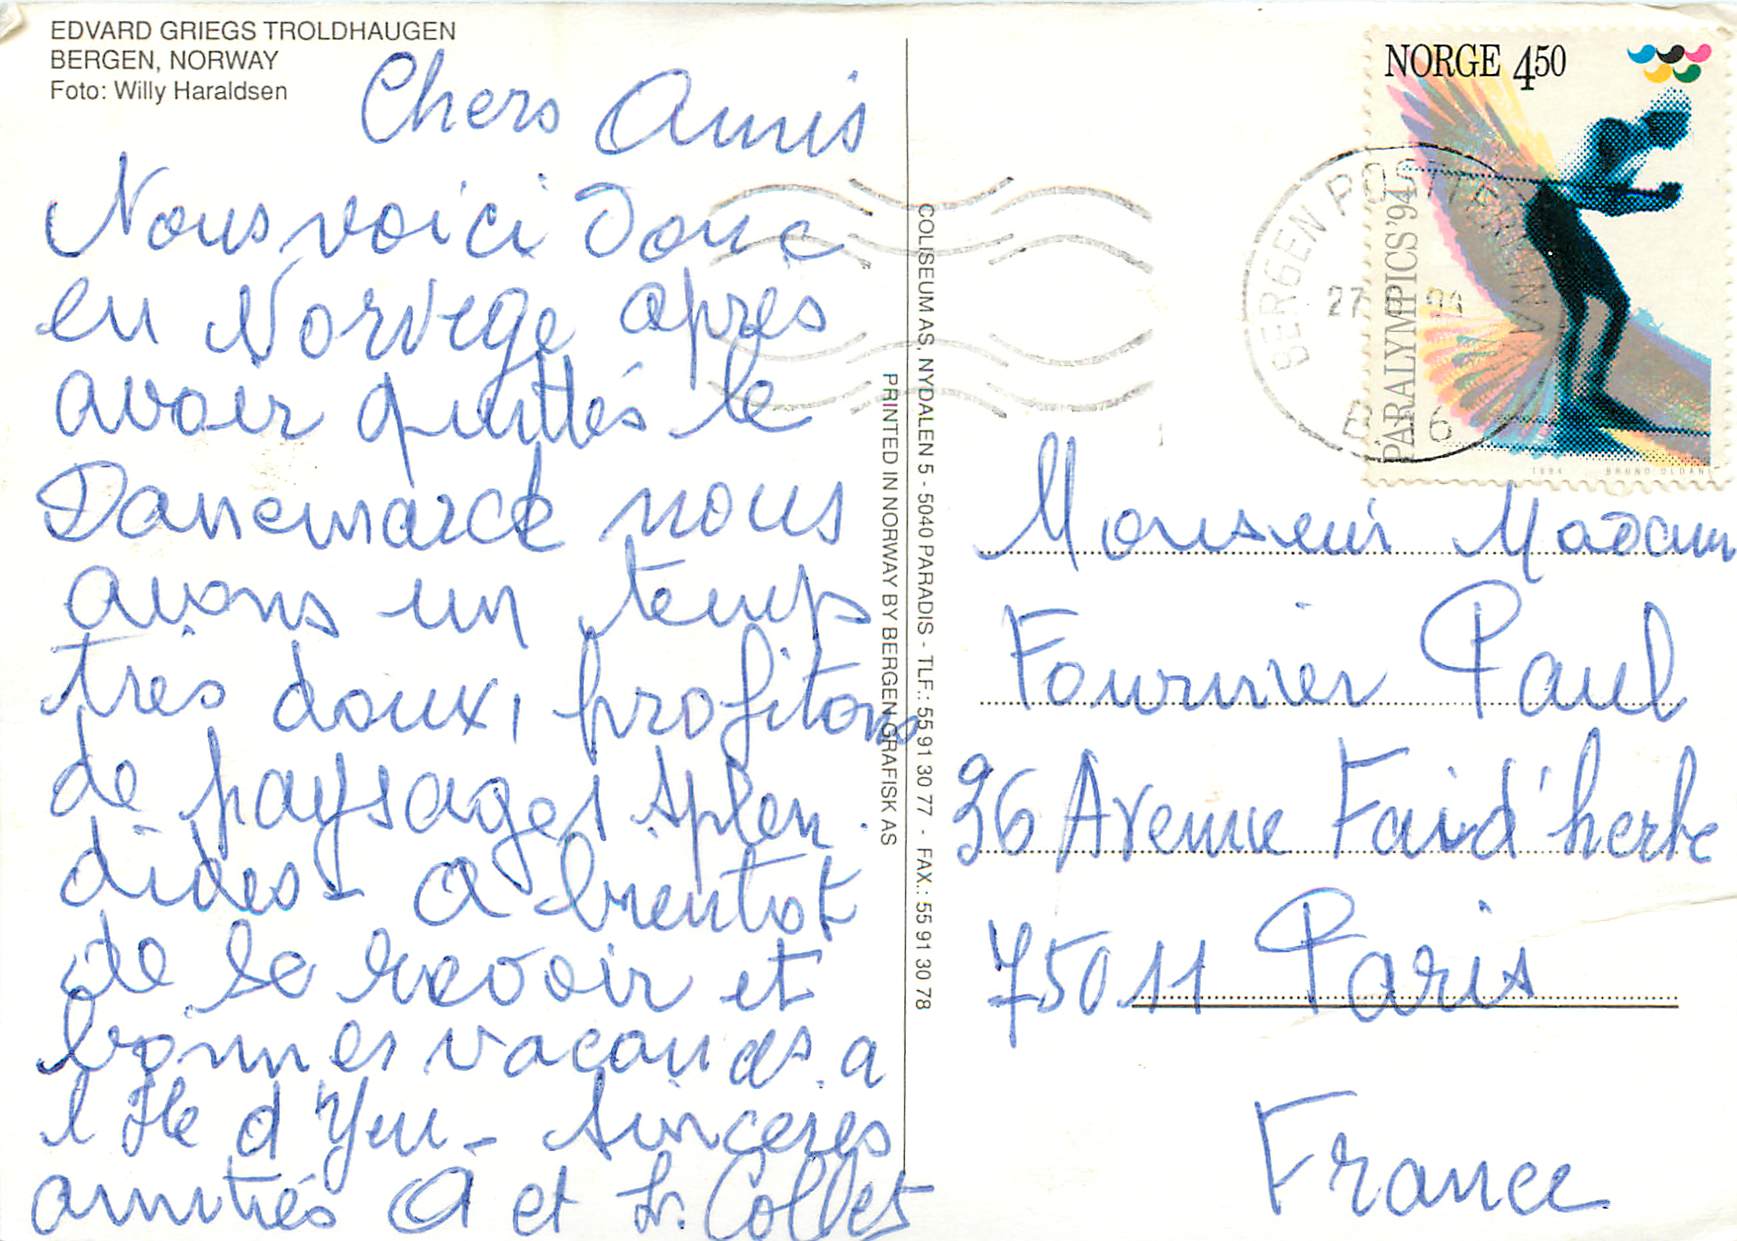 EDVARD GRIEGS TROLDHAUGEN
BERGEN, NORWAY
Foto: Willy Haraldsen
Chers Amis
Nous voici Donc
en Norvège après
avoir quittés le
Danemarck nous
avons un temps
très doux, profitons
de paysages splen
dides - A bientot
de se revoir et
bonnes vacances a
l'Ile d'Yeu - Sincères
amitiés A et L. Collet
COLISEUM AS, NYDALEN 5 - 5040 PARADIS - TLF.: 55 91 30 77 - FAX.: 55 91 30 78
PRINTED IN NORWAY BY BERGEN GRAFISK AS
NORGE 450
PARALYMPICS '94
1994 BRUNO OLDANI
BERGEN POSTTERMINAL
27
6
Monsieur Madame
Fournier Paul
36 Avenue Faid'herbe
75011 Paris
France